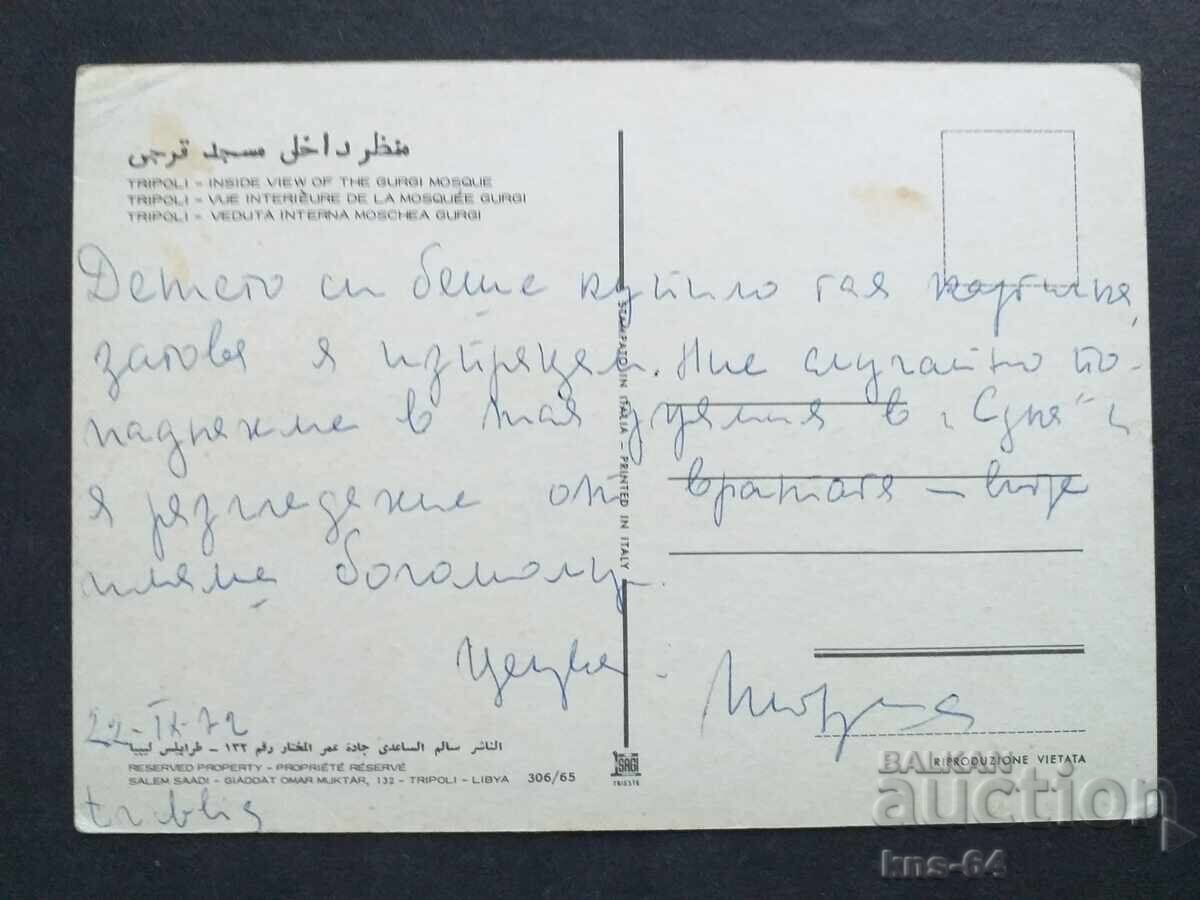 منظر داخلى مسجد قرجى
TRIPOLI - INSIDE VIEW OF THE GURGI MOSQUE
TRIPOLI - VUE INTERIÈURE DE LA MOSQUÉE GURGI
TRIPOLI - VEDUTA INTERNA MOSCHEA GURGI
Детето си беше купило тая картичка,
затова я изпращам. Ние случайно по-
паднахме в тая в "
я разгледахме от вратата - вътре
имаше богомолци.
Цецка
22-IX-72
الناشر سالم الساعدى جادة عمر المختار رقم ١٣٢ - طرابلس ليبيا
RESERVED PROPERTY - PROPRIÉTÉ RÉSERVÉ
SALEM SAADI - GIADDAT OMAR MUKTAR, 132 - TRIPOLI - LIBYA 306/65
STAMPATO IN ITALIA - PRINTED IN ITALY
SAGI
TRIESTE
RIPRODUZIONE VIETATA
BALKAN
auction
kns-64